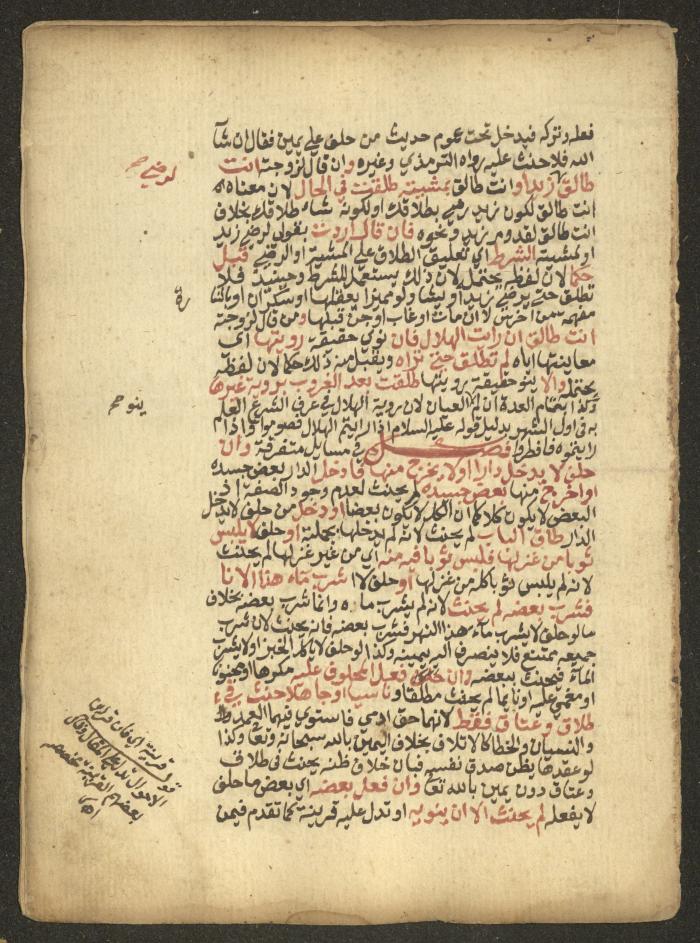 فعله وتركه فيدخل تحت عموم حديث من حلف على يمين فقال ان شآ
الله فلا حنث عليه رواه الترمذي وغيره وان قال لزوجته انت
طالق لرضى زيد او انت طالق بمشيته طلقت في الحال لان معناه
انت طالق لكون زيد رضي بطلاقك او لكونه شاء طلاقك بخلاف
انت طالق لقدوم زيد ونحوه فان قال اردت بقولي لرضى زيد
او لمشيته الشرط اي تعليق الطلاق على المشية او الرضى قبل
حكما لان لفظه يحتمله لان ذلك يستعمل للشرط وحينيذ فلا
تطلق حتى يرضى زيد او يشا ولو مميزا يعقلها او سكران او باشارة
مفهمة ممن اخرس لا ان مات او غاب او جن قبلها ومن قال لزوجته
انت طالق ان رايت الهلال فان نوى حقيقة رويتها اي
معاينتها اياه لم تطلق حتى تراه ويقبل منه ذلك حكما لان لفظه
يحتمله والا ينو حقيقة رويتها طلقت بعد الغروب بروية غيرها
وكذا بتمام العدة ان لم العيان لان روية الهلال في عرف الشرع العلم
به في اول الشهر بدليل قوله عليه السلام اذا رايتم الهلال فصوموا واذا
رايتموه فافطروا فصل في مسايل متفرقة وان
حلف لا يدخل دارا او لا يخرج منها فادخل الدار بعض جسده
او اخرج منها بعض جسده لم يحنث لعدم وجود الصفة اذ
البعض لا يكون كلا كما ان الكل لا يكون بعضا او دخل من حلف لا يدخل
الدار طاق الباب لم يحنث لانه لم يدخلها بجملته او حلف لا يلبس
ثوبا من غزلها فلبس ثوبا فيه منه اي من غير غزلها لم يحنث
لانه لم يلبس ثوبا كله من غزلها او حلف لا شرب ماء هذا الانا
فشرب بعضه لم يحنث لانه لم يشرب ماه وانما شرب بعضه بخلاف
ما لو حلف لا يشرب ماء هذا النهر فشرب بعضه فانه يحنث لان شرب
جميعه ممتنع فلا ينصرف اليه يمينه وكذا لو حلف لا ياكل الخبز او لا يشرب
الماء فيحنث ببعضه وان فعل المحلوف عليه مكرها او مجنونا
او مغمى عليه او نايما لم يحنث مطلقا وناسيا او جاهلا حنث في
طلاق وعتاق فقط لانهما حق ادمي فاستوى فيهما العمد
والنسيان والخطا كالاتلاف بخلاف اليمين بالله سبحانه وتعا وكذا
لو عقدها يظن صدق نفسه فبان خلاف ظنه يحنث في طلاق
وعتاق دون يمين بالله تعا وان فعل بعضه اي بعض ما حلف
لا يفعله لم يحنث الا ان ينويه او تدل عليه قرينة كما تقدم فيمن
لرضى صح
ينو صح